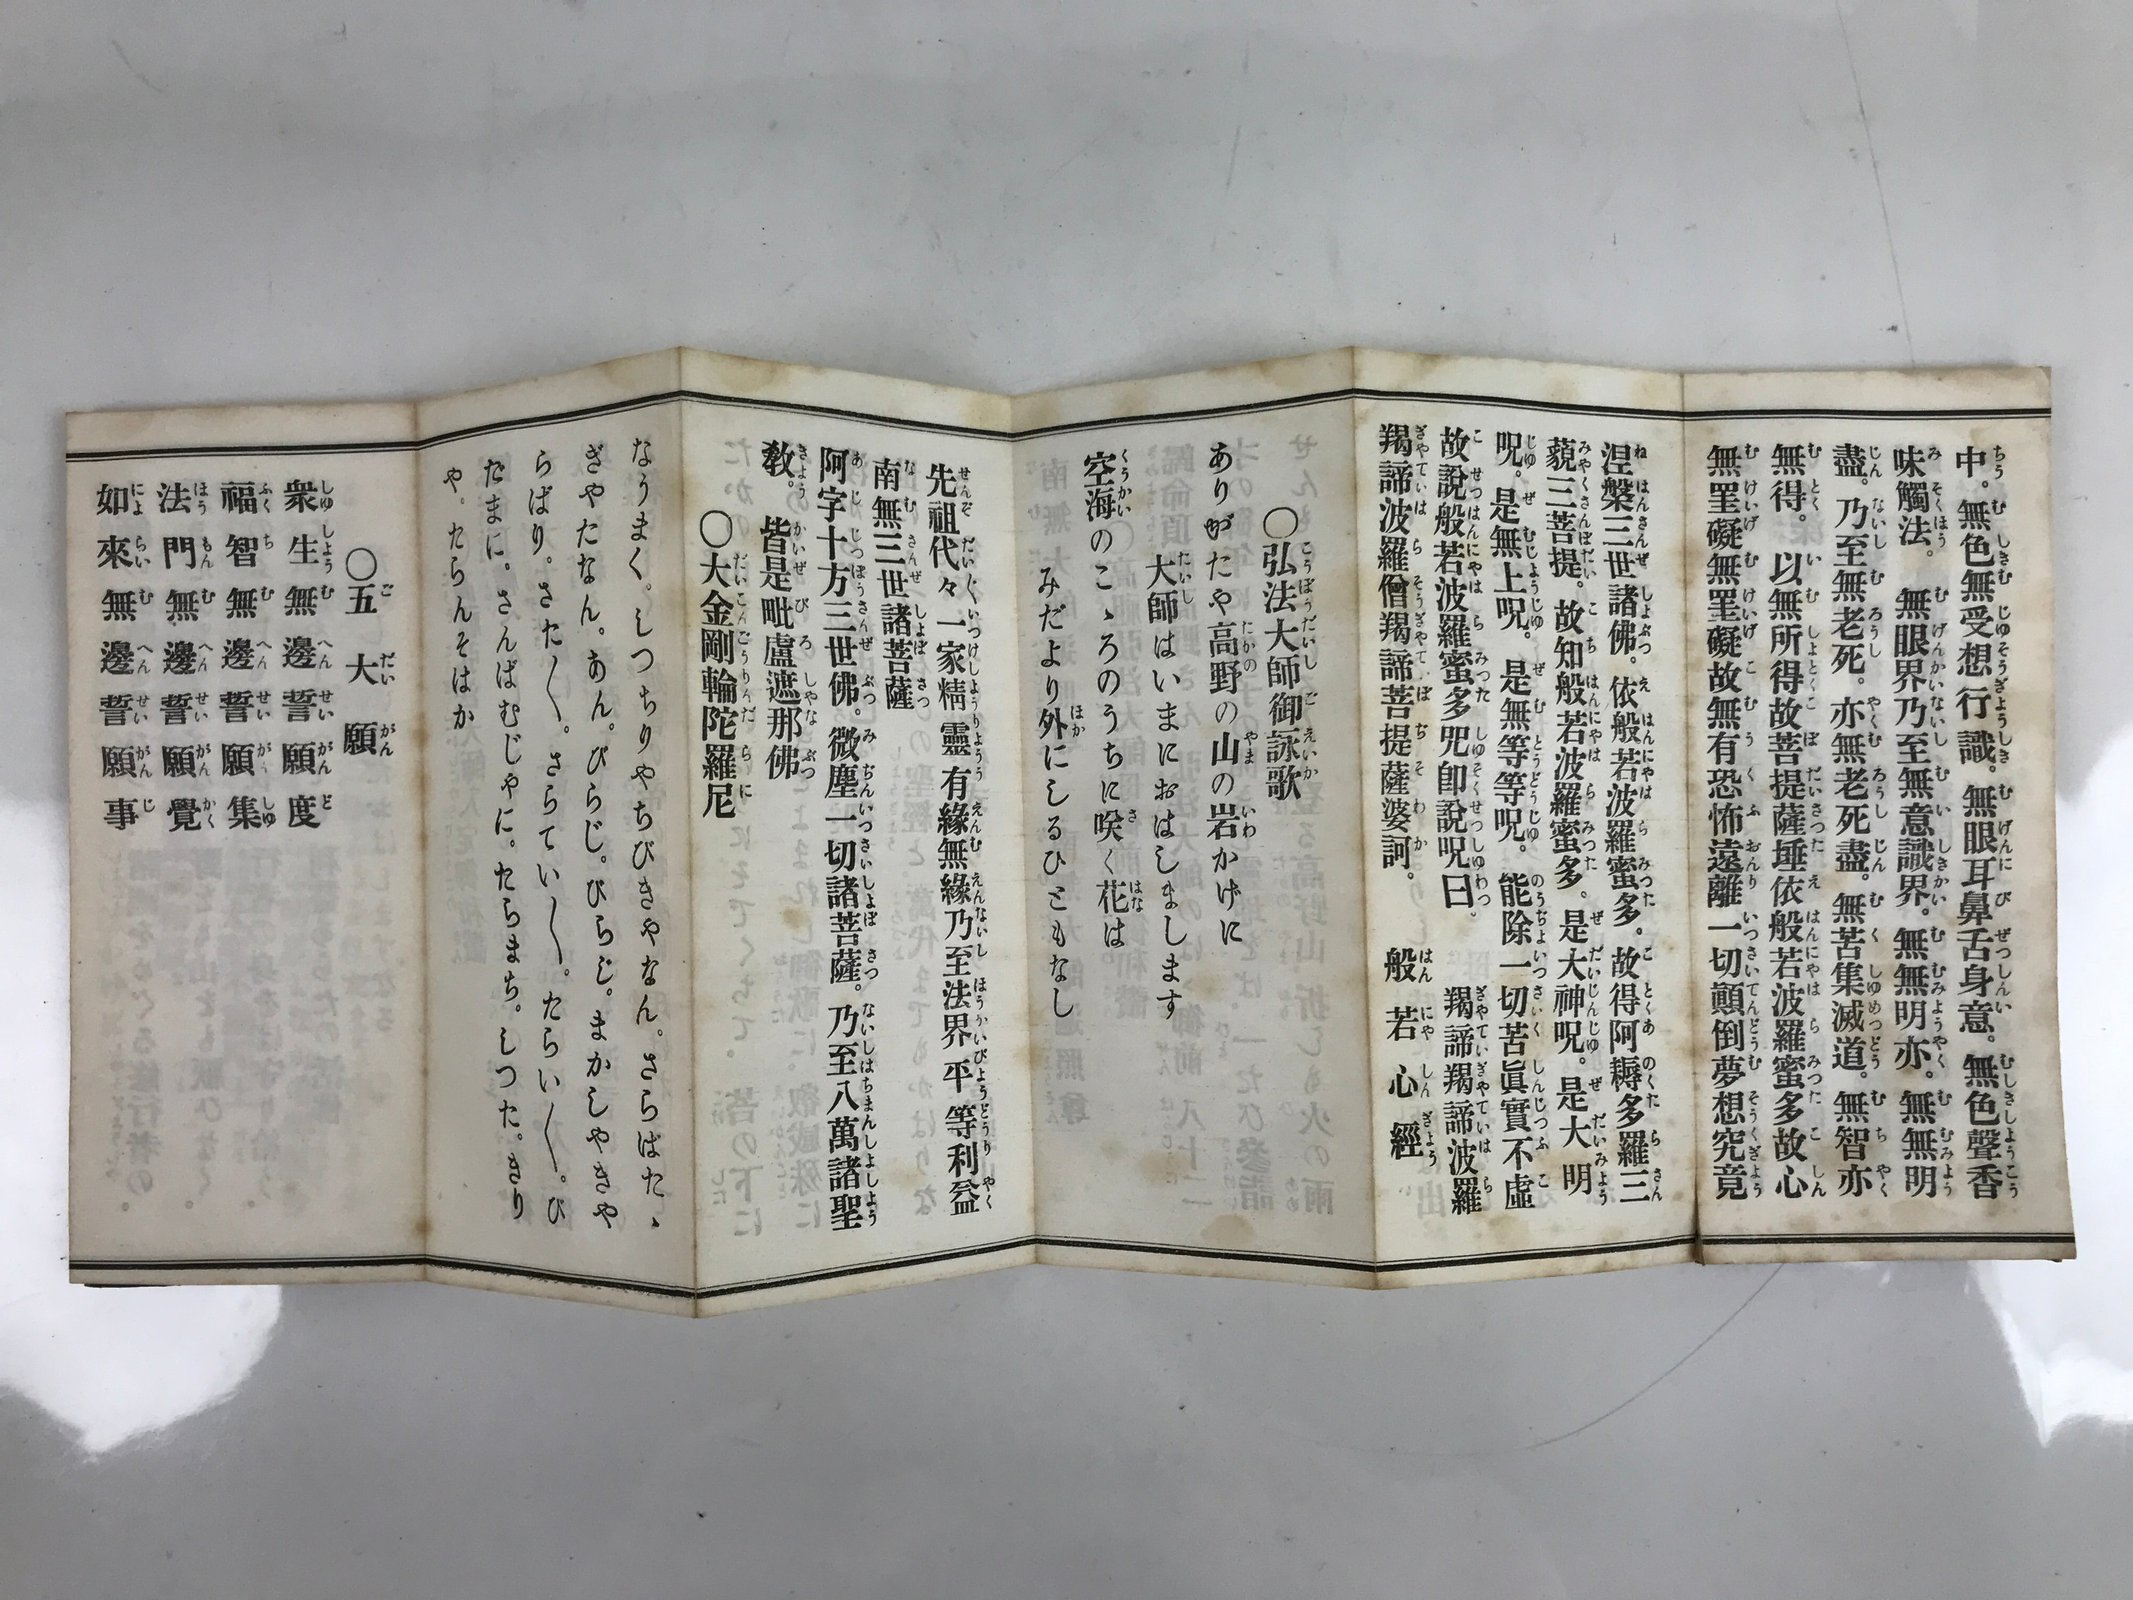 中。無色無受想行識。無眼耳鼻舌身意。無色聲香
味觸法。無眼界乃至無意識界。無無明亦。無無明
盡。乃至無老死。亦無老死盡。無苦集滅道。無智亦
無得。以無所得故菩提薩埵依般若波羅蜜多故心
無罣礙無罣礙故無有恐怖遠離一切顚倒夢想究竟
涅槃三世諸佛。依般若波羅蜜多。故得阿耨多羅三
藐三菩提。故知般若波羅蜜多。是大神呪。是大明
呪。是無上呪。是無等等呪。能除一切苦眞實不虛
故說般若波羅蜜多咒卽說呪曰。羯諦羯諦波羅
羯諦波羅僧羯諦菩提薩婆訶。般若心經
〇弘法大師御詠歌
ありがたや高野の山の岩かげに
大師はいまにおはしまします
空海のこゝろのうちに咲く花は
みだより外にしるひともなし
先祖代々一家精靈有緣無緣乃至法界平等利益
南無三世諸菩薩
阿字十方三世佛。微塵一切諸菩薩。乃至八萬諸聖
敎。皆是毗盧遮那佛
〇大金剛輪陀羅尼
なうまく。しつちりやちびきやなん。さらばたゝ
ぎやたなん。あん。びらじ。びらじ。まかしやきや
らばり。さた〱。さらてい〱。たらい〱。び
たまに。さんばむじやに。たらまち。しつた。きり
や。たらんそはか
〇五大願
衆生無邊誓願度
福智無邊誓願集
法門無邊誓願覺
如來無邊誓願事